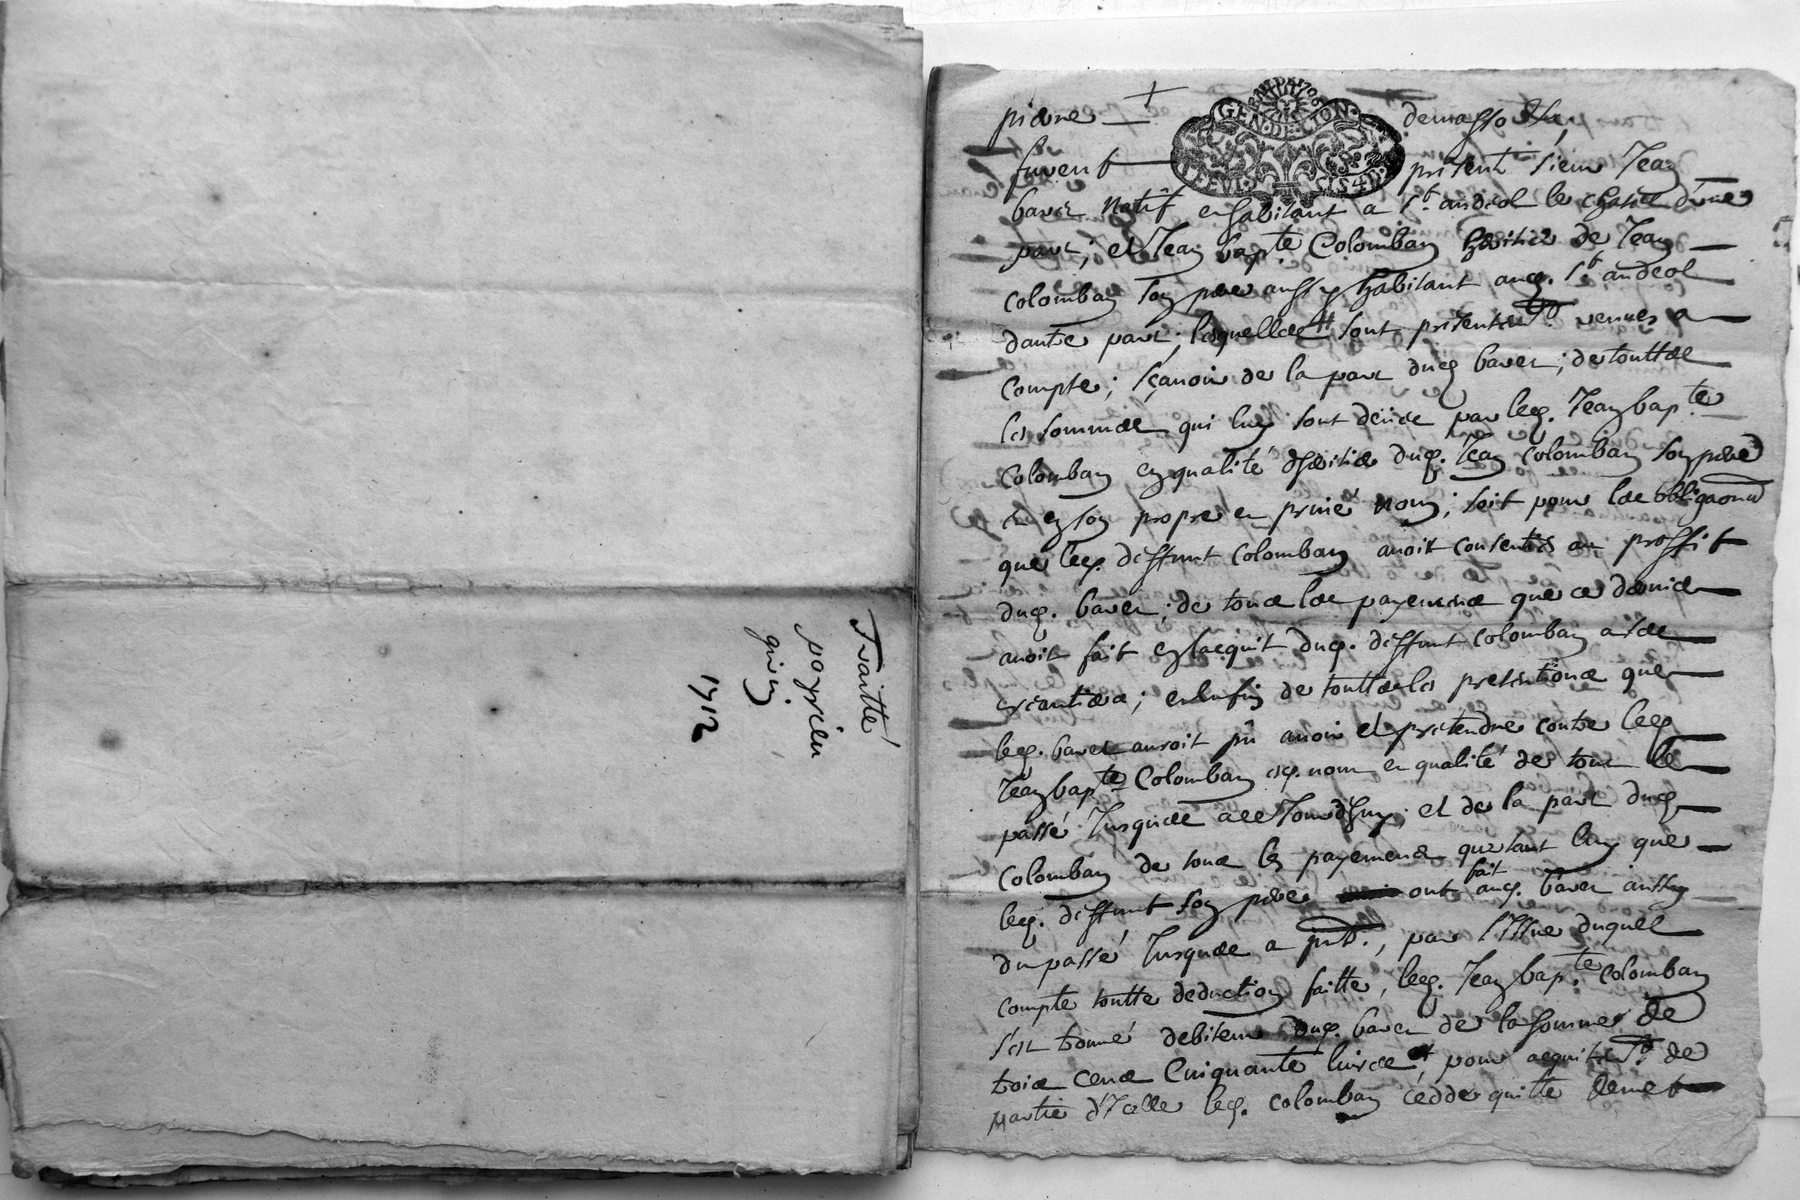 Traitté
papieu
1712
GEN. DE LYON
pierre
furent present sieur Jean
bares natif en habitant a St. andeol le chastel d'une
part; et Jean bapte. Colomban heritier de Jean
colomban son pere aussy habitant aud. St. andeol
dautre part; lesquelles sont presentemt. venues a
compte; sçauoir de la part dud bares; de touttes
les sommes qui luy sont deües par led. Jean bapte
Colomban en qualité dheritier dud. Jean colomban son pere
et en son propre en privé nom; soit pour les obligaons
que led. deffunt colomban auoit consenties au proffit
dud. bares; de tous les payements que ce dernier
auoit fait en lacquit dud. deffunt colomban a ses
creantiers; en enfin de touttes les pretentions que
led. bares auroit pû auoir et pretendre contre led
Jean bapte Colomban esd. nom en qualité de tout le
passé Jusques a ce Jourdhuy; et de la part dud
Colomban de tous les payements que tant luy que
led. deffunt son pere ont fait aud. bares aussy
du passé Jusques a pnt., par l'Issue duquel
compte toutte deduction faitte, led. Jean bapte. colomban
s'est trouué debiteur dud. bares de la somme de
trois cens Cinquante liures et pour acquittemt. de
partie d'Jcelle led. colomban cedde quitte remet